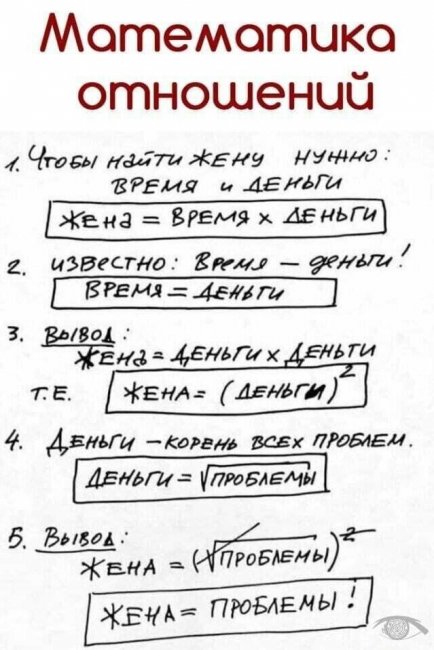 Математика
отношений
1. Чтобы найти жену нужно:
время и деньги
Жена = время x деньги
2. известно: Время – деньги!
Время = деньги
3. Вывод:
Жена = деньги x деньги
т.е. Жена = (деньги)²
4. Деньги – корень всех проблем.
Деньги = √проблемы
5. Вывод:
Жена = (√проблемы)²
Жена = проблемы!